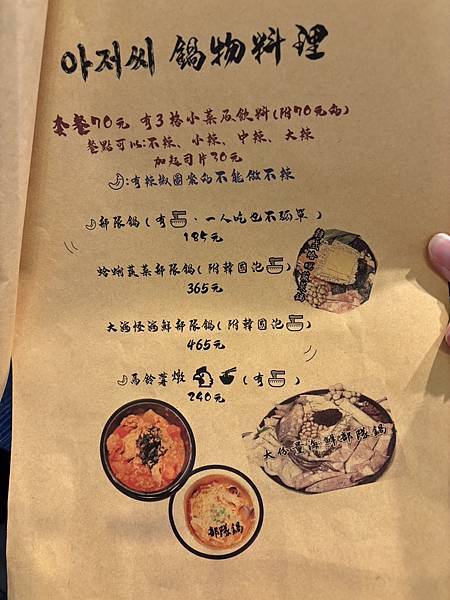 아저씨 鍋物料理
套餐70元 有3格小菜及飲料(附70元內)
餐點可以:不辣、小辣、中辣、大辣
加起司片30元
:有辣椒圖案的不能做不辣
部隊鍋(有、一人吃也不孤單)
185元
蛤蜊蔬菜部隊鍋(附韓國泡)
365元
大海怪海鮮部隊鍋(附韓國泡)
465元
馬鈴薯燉(有)
240元
大份量海鮮部隊鍋
部隊鍋